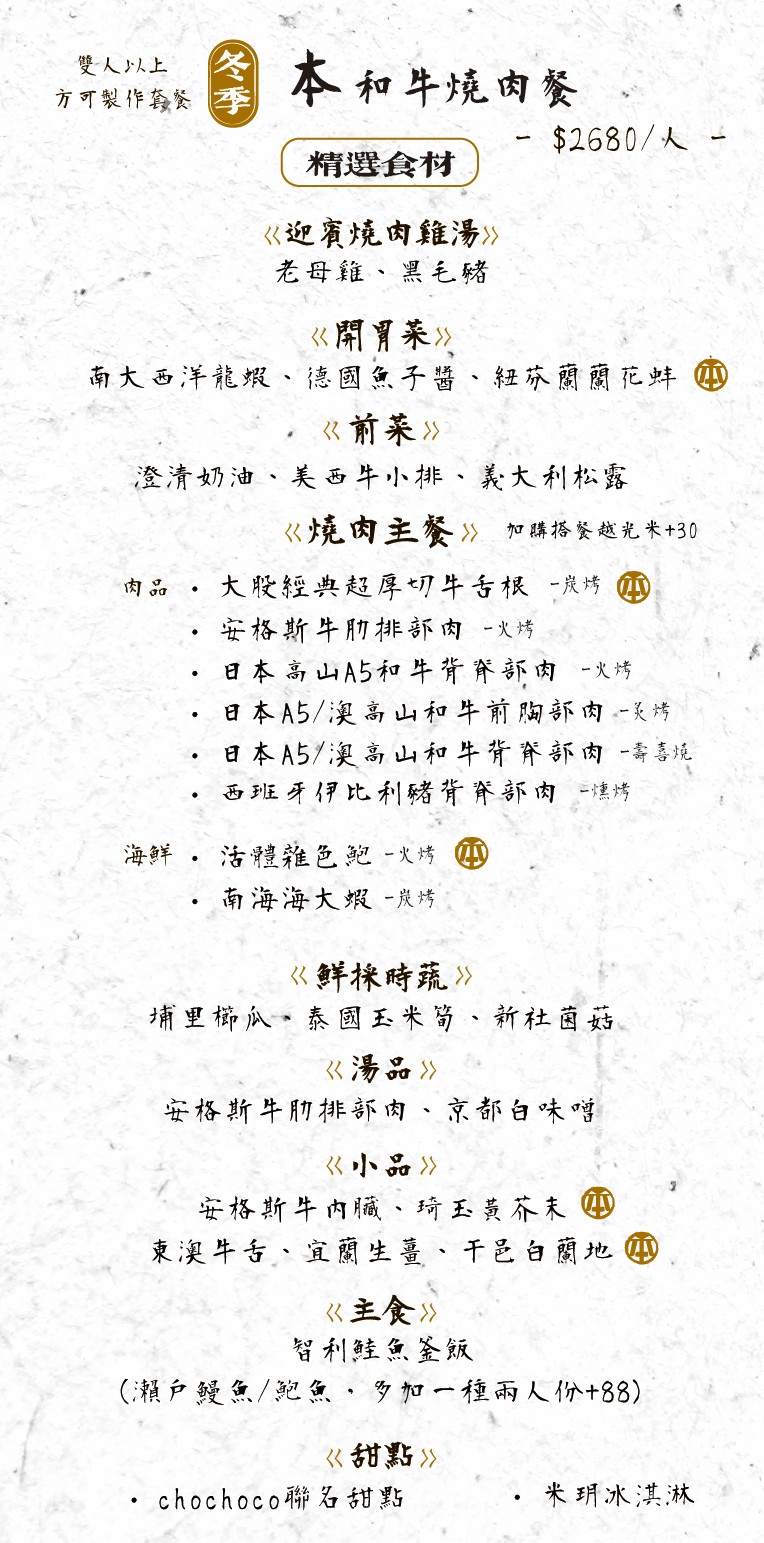 雙人以上
方可製作套餐
冬季
本和牛燒肉餐
- $2680/人 -
精選食材
《迎賓燒肉雞湯》
老母雞、黑毛豬
《開胃菜》
南大西洋龍蝦、德國魚子醬、紐芬蘭蘭花蚌 本
《前菜》
澄清奶油、美西牛小排、義大利松露
《燒肉主餐》 加購搭餐越光米+30
肉品 • 大股經典超厚切牛舌根 -炭烤 本
• 安格斯牛肋排部肉 -火烤
• 日本高山A5和牛背脊部肉 -火烤
• 日本A5/澳高山和牛前胸部肉 -炙烤
• 日本A5/澳高山和牛背脊部肉 -壽喜燒
• 西班牙伊比利豬背脊部肉 -燻烤
海鮮 • 活體雜色鮑 -火烤 本
• 南海海大蝦 -炭烤
《鮮採時蔬》
埔里櫛瓜、泰國玉米筍、新社菌菇
《湯品》
安格斯牛肋排部肉、京都白味噌
《小品》
安格斯牛內臟、琦玉黃芥末 本
東澳牛舌、宜蘭生薑、干邑白蘭地 本
《主食》
智利鮭魚釜飯
(瀨戶鰻魚/鮑魚，多加一種兩人份+88)
《甜點》
• chochoco聯名甜點 • 米玥冰淇淋